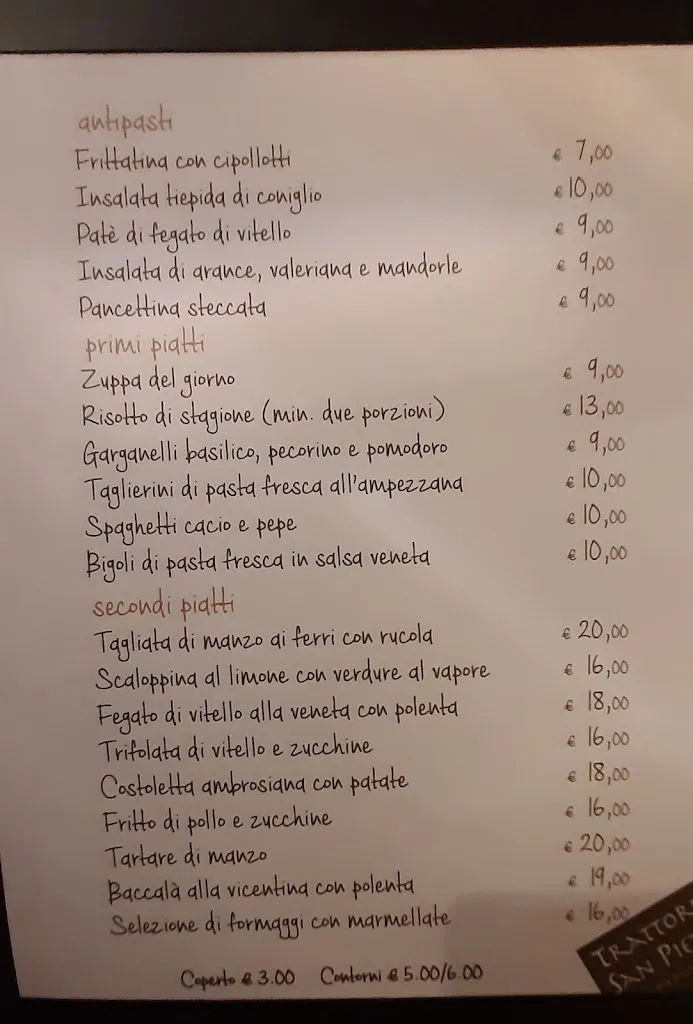 antipasti
Frittatina con cipollotti € 7,00
Insalata tiepida di coniglio € 10,00
Patè di fegato di vitello € 9,00
Insalata di arance, valeriana e mandorle € 9,00
Pancettina steccata € 9,00
primi piatti
Zuppa del giorno € 9,00
Risotto di stagione (min. due porzioni) € 13,00
Garganelli basilico, pecorino e pomodoro € 9,00
Taglierini di pasta fresca all'ampezzana € 10,00
Spaghetti cacio e pepe € 10,00
Bigoli di pasta fresca in salsa veneta € 10,00
secondi piatti
Tagliata di manzo ai ferri con rucola € 20,00
Scaloppina al limone con verdure al vapore € 16,00
Fegato di vitello alla veneta con polenta € 18,00
Trifolata di vitello e zucchine € 16,00
Costoletta ambrosiana con patate € 18,00
Fritto di pollo e zucchine € 16,00
Tartare di manzo € 20,00
Baccalà alla vicentina con polenta € 19,00
Selezione di formaggi con marmellate € 16,00
Coperto € 3.00 Contorni € 5.00/6.00
TRATTOR
SAN PIE